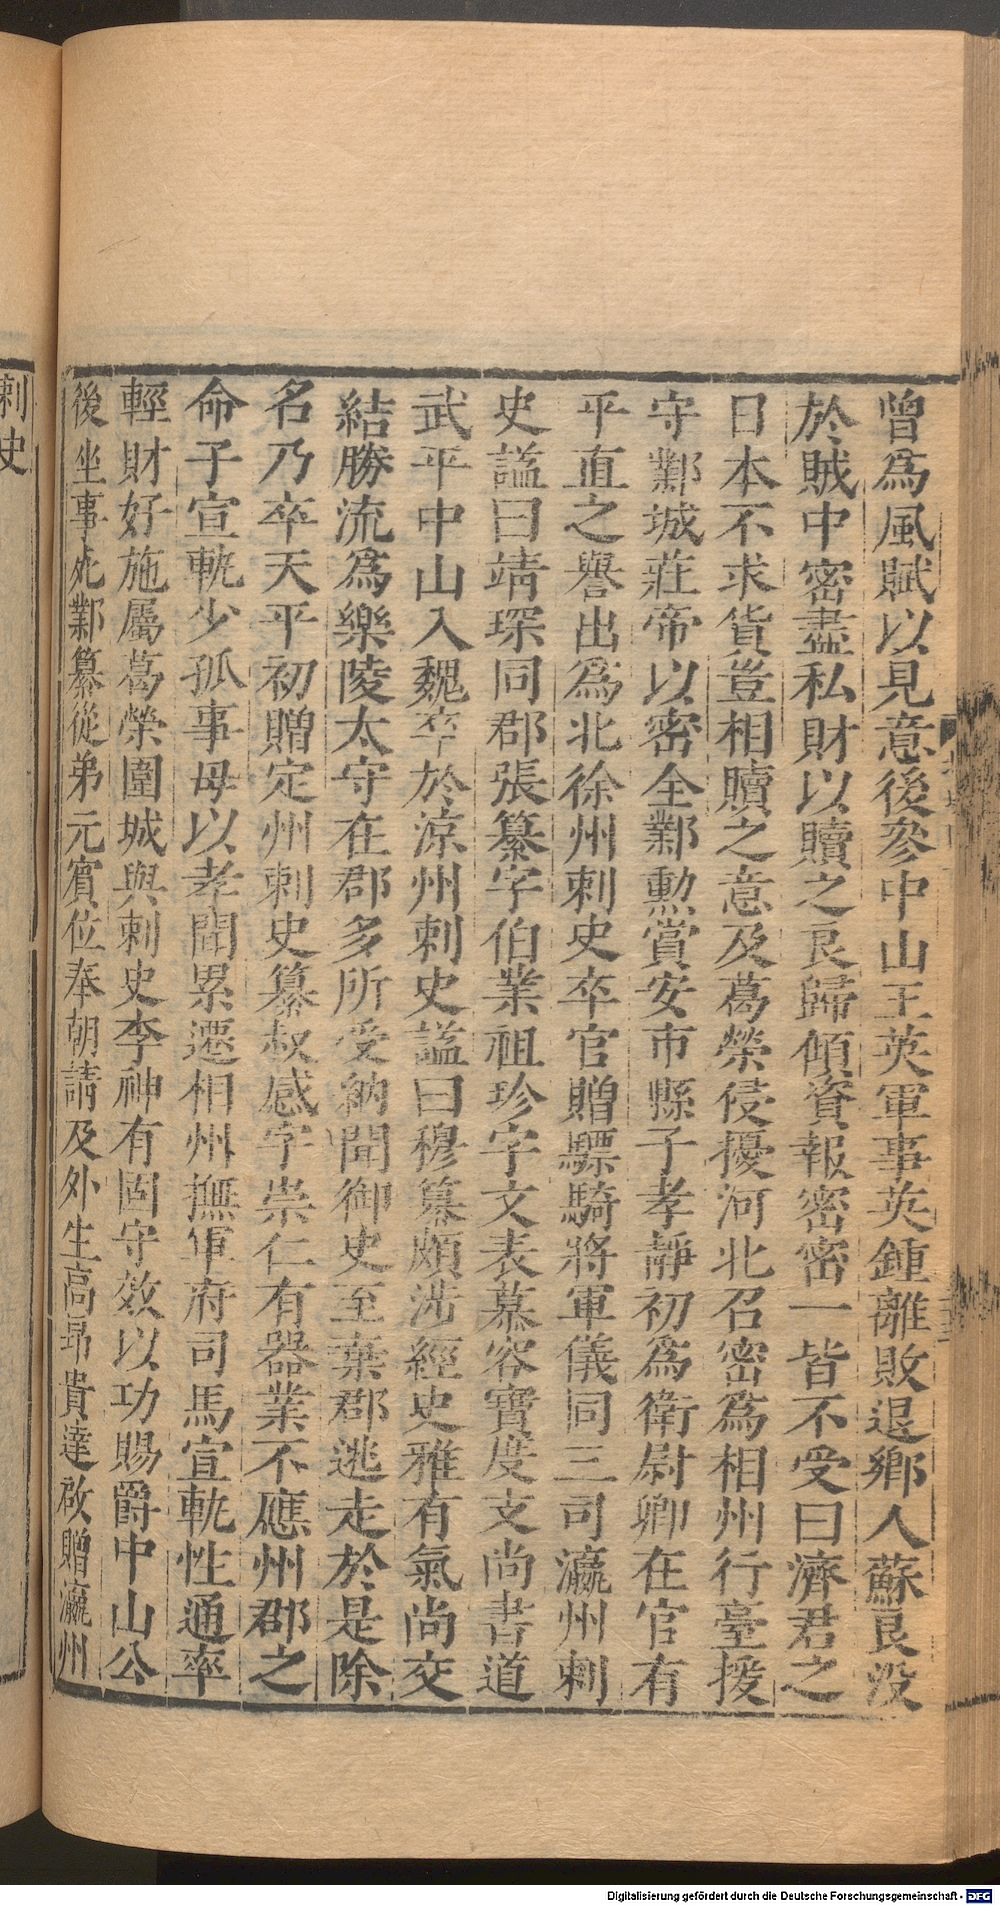 曾爲風賦以見意後參中山王英軍事英鍾離敗退鄉人蘇良没
於賊中密盡私財以贖之良歸傾資報密密一皆不受曰濟君之
日本不求貨豈相贖之意及葛榮侵擾河北召密爲相州行臺援
守鄴城莊帝以密全鄴勳賞安市縣子孝靜初爲衛尉卿在官有
平直之譽出爲北徐州刺史卒官贈驃騎將軍儀同三司瀛州刺
史謚曰靖琛同郡張纂字伯業祖珍字文表慕容寶度支尚書道
武平中山入魏卒於涼州刺史謚曰穆纂頗涉經史雅有氣尚交
結勝流爲樂陵太守在郡多所受納聞御史至棄郡逃走於是除
名乃卒天平初贈定州刺史纂叔感字崇仁有器業不應州郡之
命子宣軌少孤事母以孝聞累遷相州撫軍府司馬宣軌性通率
輕財好施屬葛榮圍城與刺史李神有固守效以功賜爵中山公
後坐事死鄴纂從弟元賓位奉朝請及外生高昂貴達啟贈瀛州
刺史
Digitalisierung gefördert durch die Deutsche Forschungsgemeinschaft - DFG